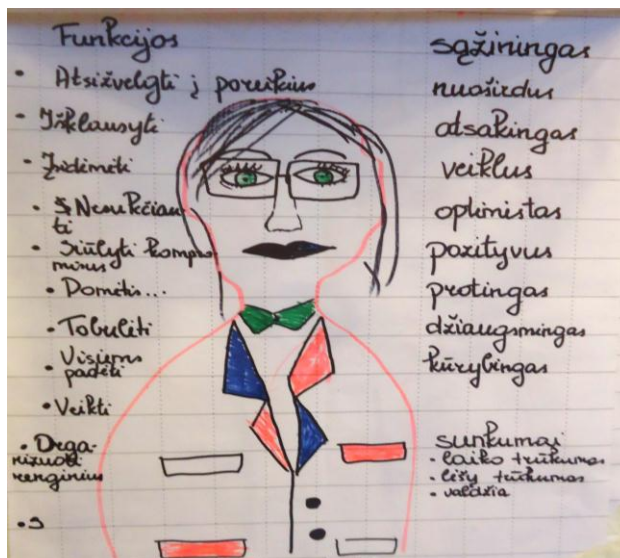 Funkcijos
• Atsižvelgti į poreikius
• Išklausyti
• Įsidėmėti
• Nesukčiau-
ti
• Siūlyti kompro
misus
• Domėtis...
• Tobulėti
• Visiems
padėti
• Veikti
• Orga-
nizuoti
renginius
sąžiningas
nuoširdus
atsakingas
veiklus
optimistas
pozityvus
protingas
džiaugsmingas
kūrybingas
sunkumai
• laiko trūkumas
• lėšų trūkumas
• valdžia